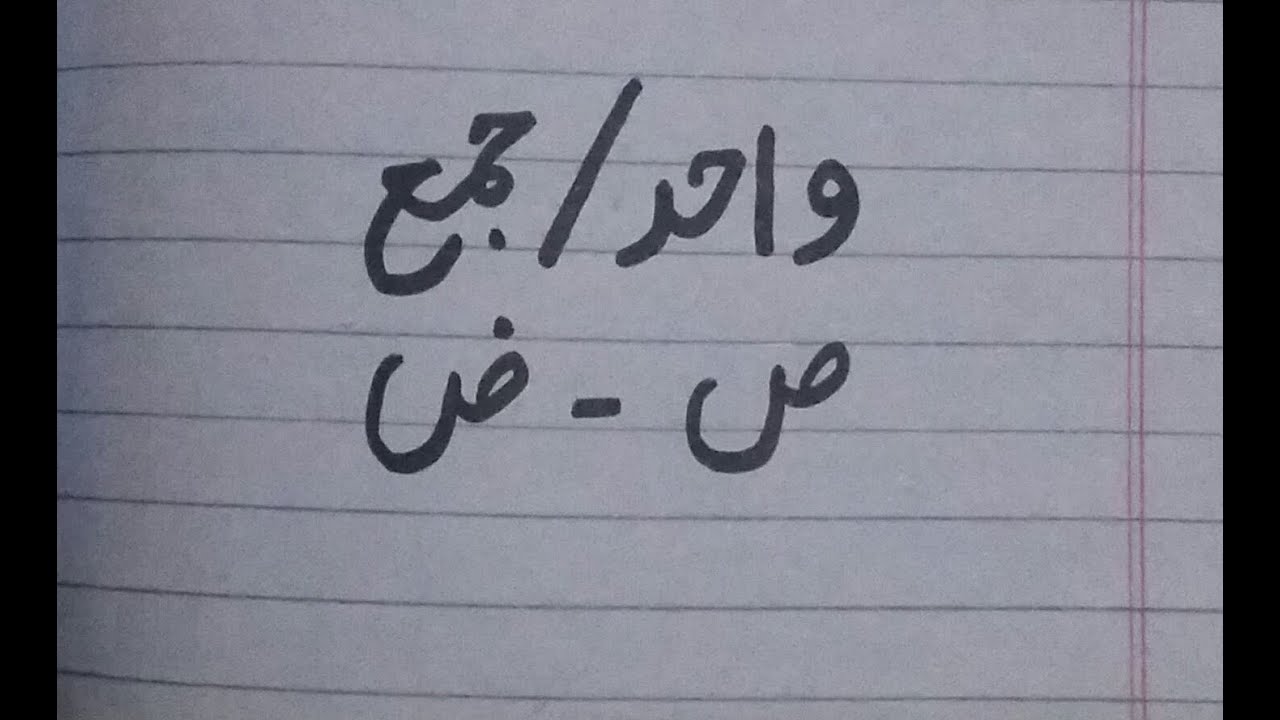 واحد/جمع
ص - ض